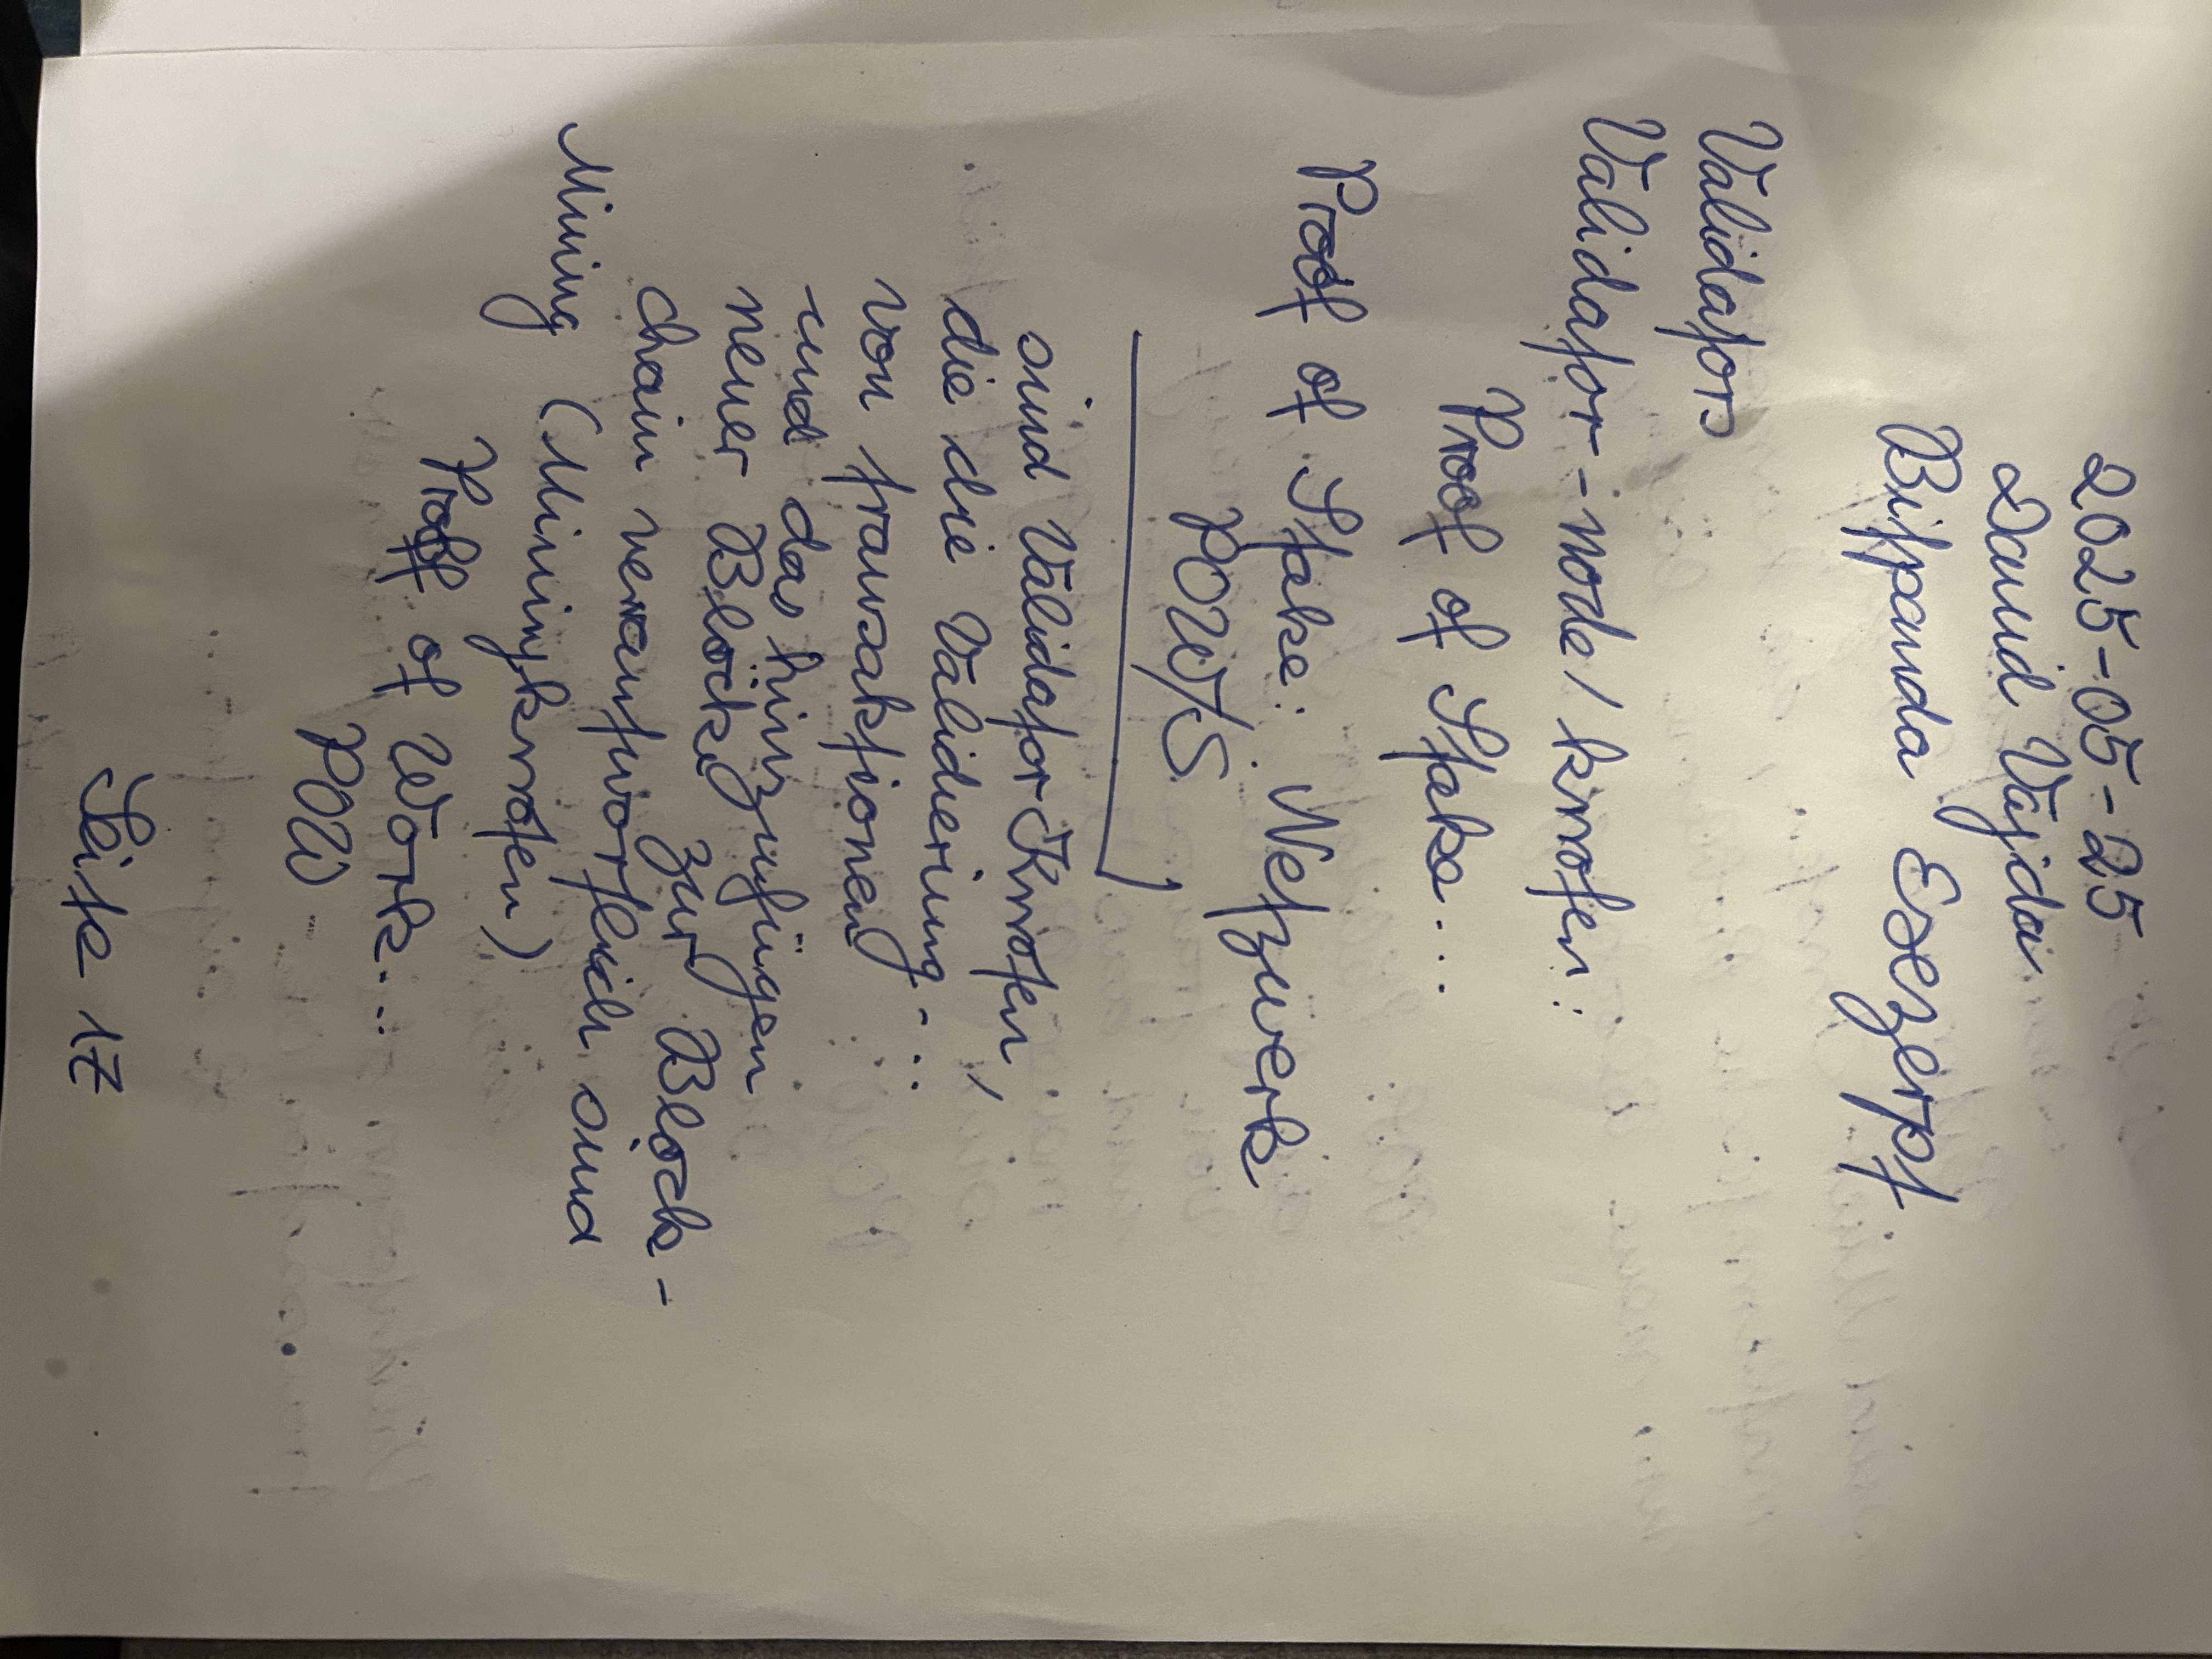 2025-05-25
David Vajda
Bitpanda Exezerpt
Validators
Validator-node/knoten:
Proof of Stake...
Proof of Stake: Netzwerk
POW/S
sind Validator-Knoten,
die die Validierung...
von transaktionen
und das hinzufügen
neuer Blöcke zur Block-
chain verantwortlich sind
Mining (Miningknoten)
Proof of Work...
POW
Seite 17